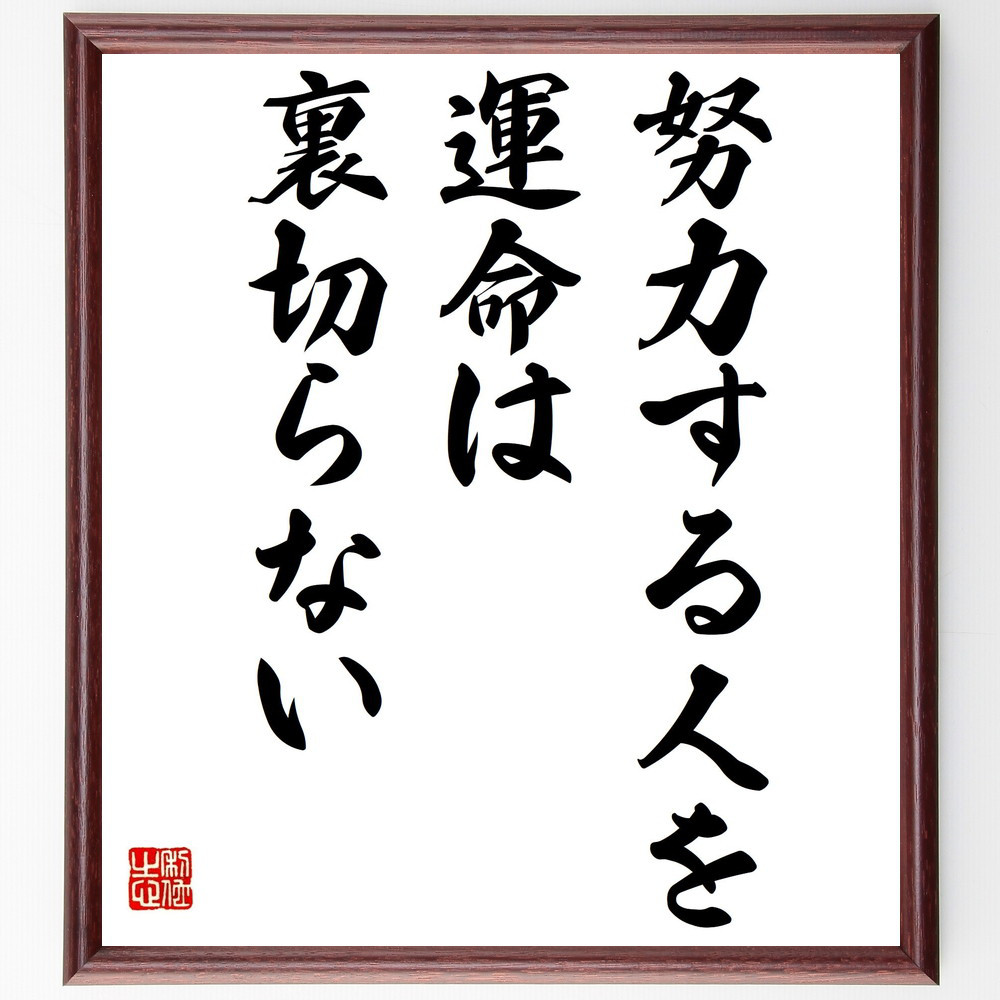 努力する人を
運命は
裏切らない